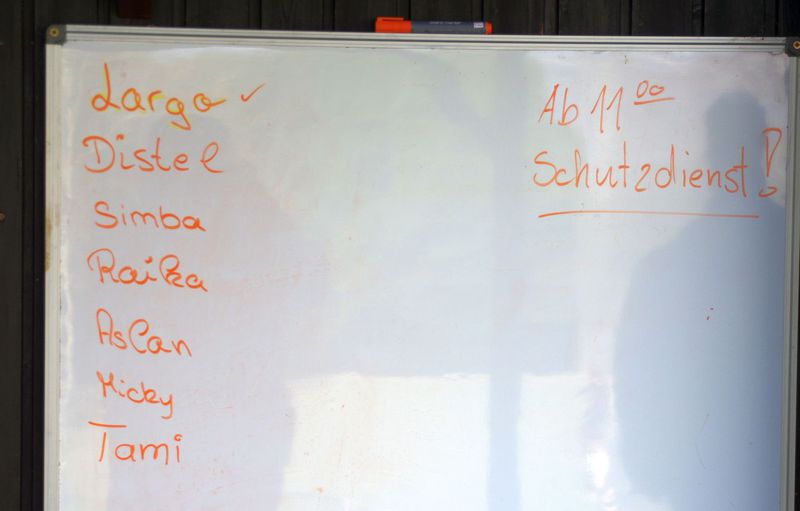 Largo ✓
Distel
Simba
Raika
Aslan
Micky
Tami
Ab 11 00
Schutzdienst!